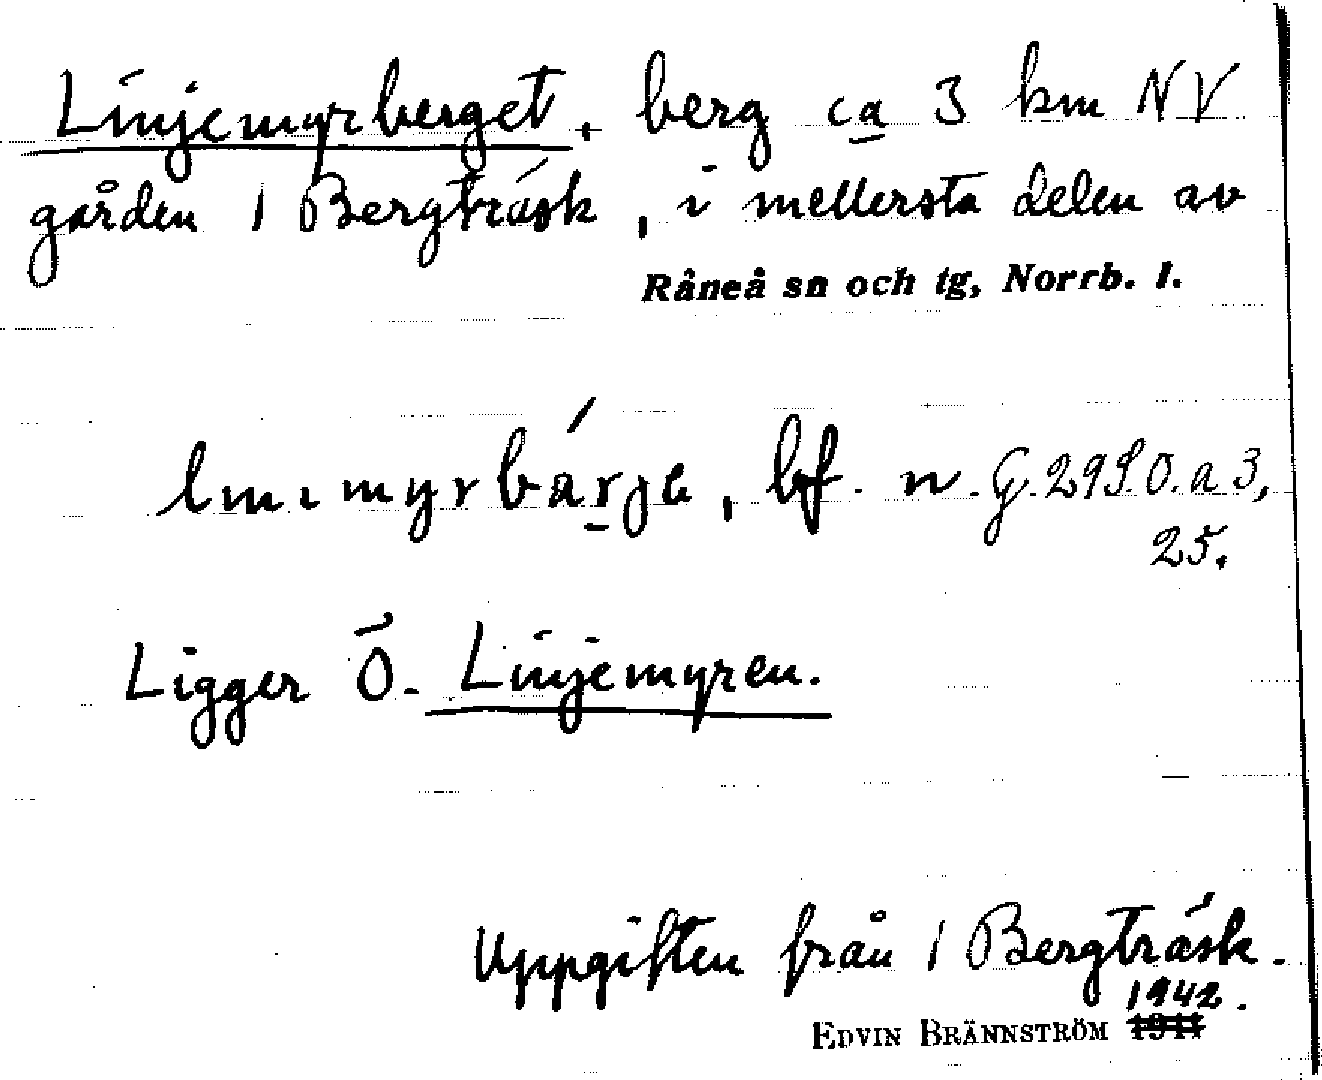 Linjemyrberget, berg ca 3 km NV
gården 1 Bergträsk, i mellersta delen av
Råneå sn och tg, Norrb. l.
bf. n. G. 29 S. O. a 3,
25.
Ligger Ö. Linjemyren.
Uppgiften från 1 Bergträsk.
1942.
EDVIN BRÄNNSTRÖM 1941